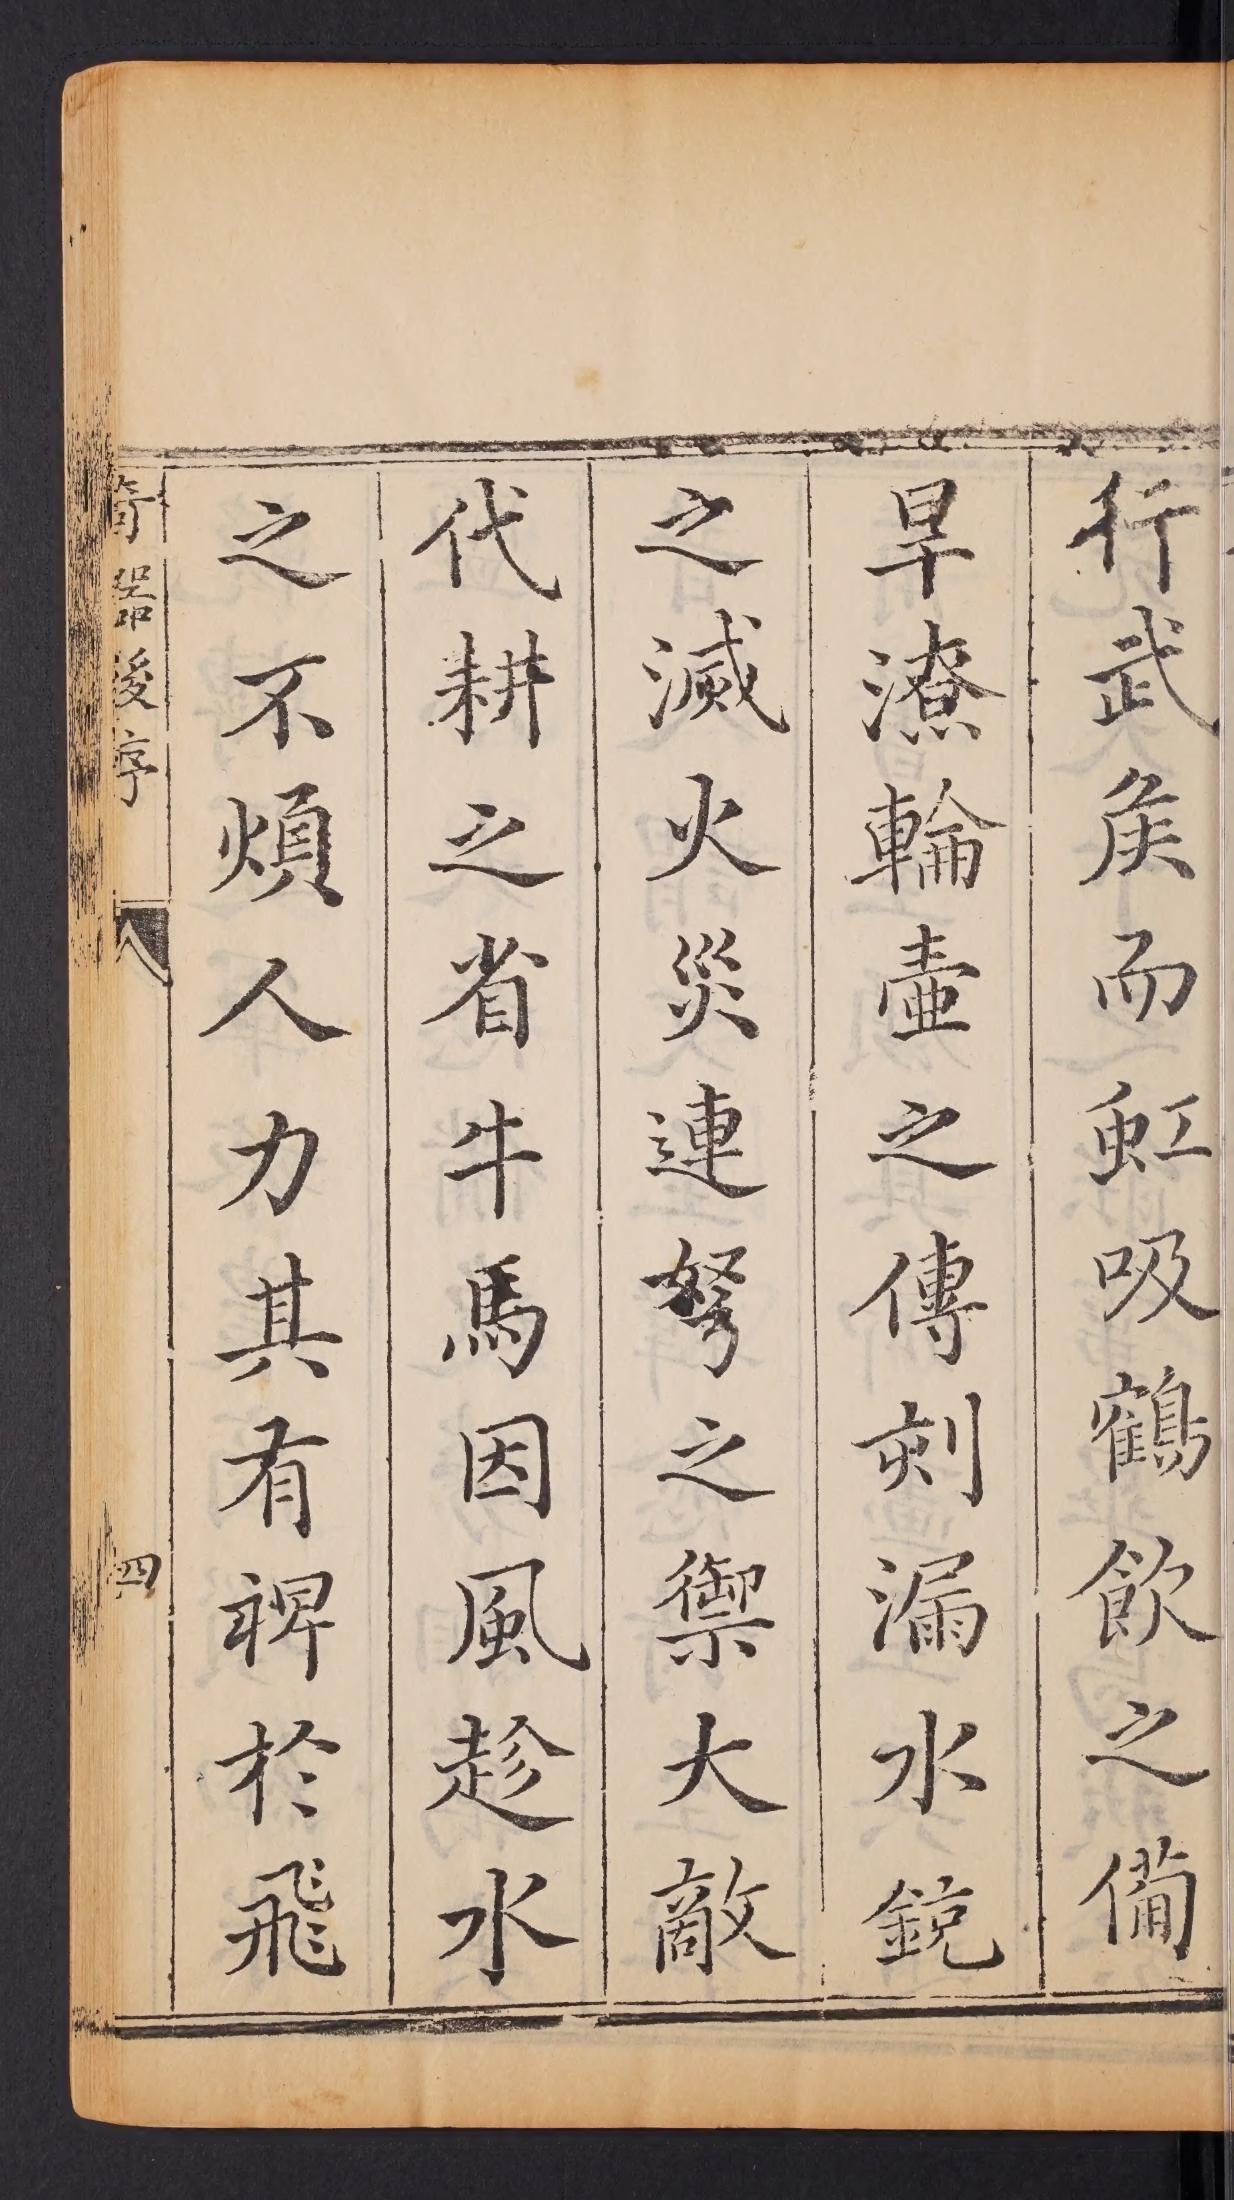 行武矦而虹吸鶴飲之備
旱潦輪壷之傳刻漏水銃
之滅火災連弩之禦大敵
代耕之省牛馬因風趁水
之不煩人力其有裨於飛
器後序
四